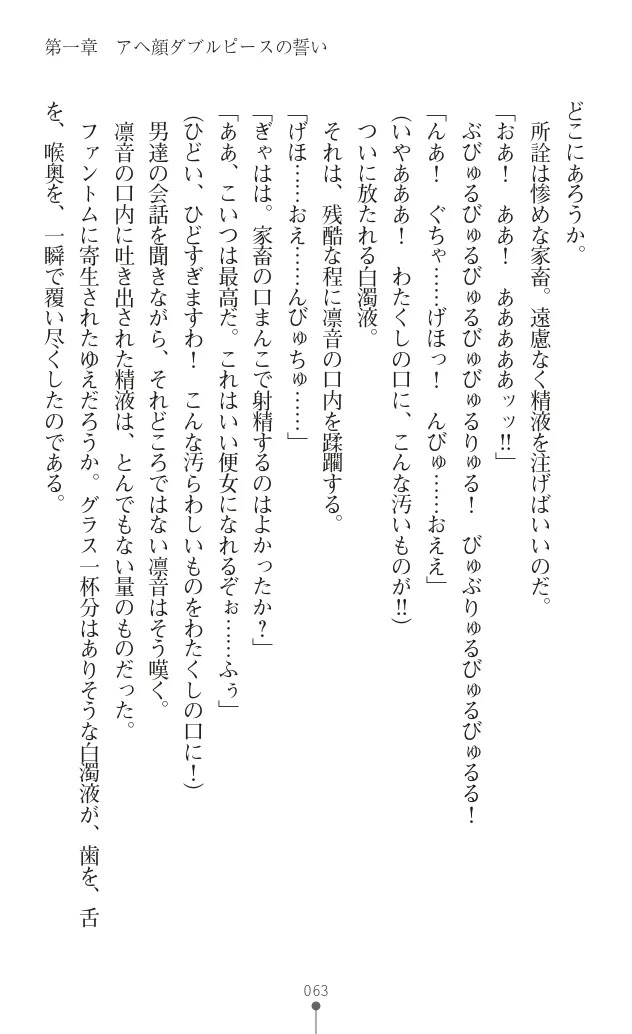 第一章　アヘ顔ダブルピースの誓い
どこにあろうか。
所詮は惨めな家畜。遠慮なく精液を注げばいいのだ。
「おぁ！　ああ！　ああああぁッッ!!」
ぶびゅるびゅるびゅるびゅびゅるりゅる！　びゅぶりゅるびゅるびゅるる！
「んぁ！　ぐちゃ……げほっ！　んびゅ……おええ」
（いやあああ！　わたくしの口に、こんな汚いものが!!）
ついに放たれる白濁液。
それは、残酷な程に凛音の口内を蹂躙する。
「げほ……おえ……んびゅちゅ……」
「ぎゃはは。家畜の口まんこで射精するのはよかったか？」
「ああ、こいつは最高だ。これはいい便女になれるぞぉ……ふぅ」
（ひどい、ひどすぎますわ！　こんな汚らわしいものをわたくしの口に！）
男達の会話を聞きながら、それどころではない凛音はそう嘆く。
凛音の口内に吐き出された精液は、とんでもない量のものだった。
ファントムに寄生されたゆえだろうか。グラス一杯分はありそうな白濁液が、歯を、舌
を、喉奥を、一瞬で覆い尽くしたのである。
063